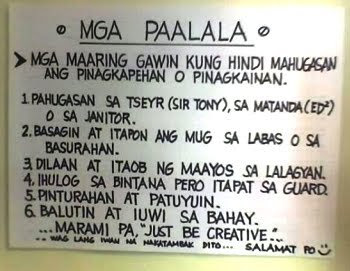 MGA PAALALA
MGA MAARING GAWIN KUNG HINDI MAHUGASAN
ANG PINAGKAPEHAN O PINAGKAINAN.
1. PAHUGASAN SA TSEYR (SIR TONY), SA MATANDA (ED²)
O SA JANITOR.
2. BASAGIN AT ITAPON ANG MUG SA LABAS O SA
BASURAHAN.
3. DILAAN AT ITAOB NG MAAYOS SA LALAGYAN.
4. IHULOG SA BINTANA PERO ITAPAT SA GUARD.
5. PINTURAHAN AT PATUYUIN.
6. BALUTIN AT IUWI SA BAHAY.
... MARAMI PA, "JUST BE CREATIVE"...
... WAG LANG IWAN NA NAKATAMBAK DITO... SALAMAT PO